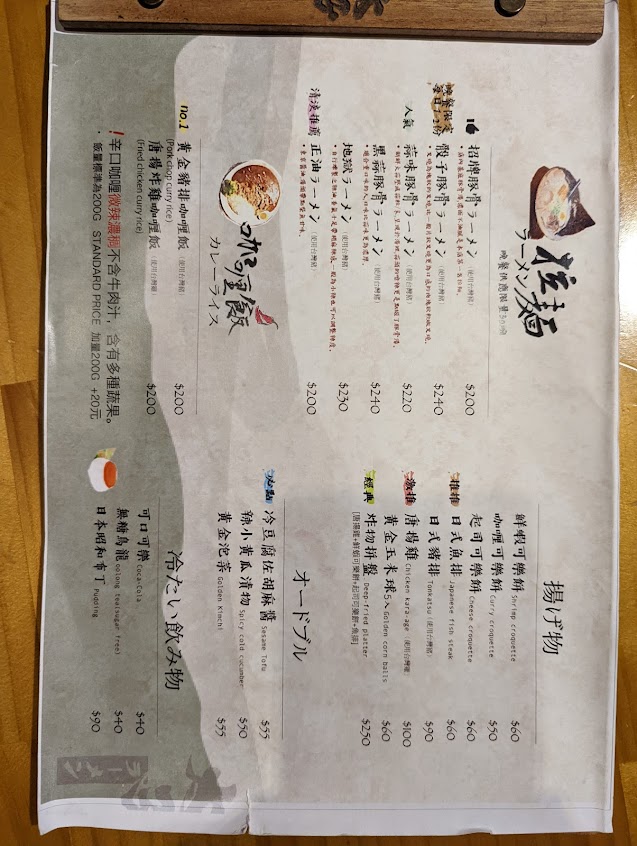 拉麺
ラーメン
晚餐供應限量30份
招牌豚骨ラーメン (使用台灣豬) $200
晚餐限定
每日7-2份
骰子豚骨ラーメン (使用台灣豬) $240
人氣 蒜味豚骨ラーメン (使用台灣豬) $220
黑蒜豚骨ラーメン (使用台灣豬) $240
地獄ラーメン (使用台灣豬) $230
清淡推薦 正油ラーメン (使用台灣豬) $200
咖哩飯
カレーライス
no.1 黃金豬排咖哩飯 (使用台灣豬) $200
(Pork chop curry rice)
唐揚炸雞咖哩飯 (使用台灣雞) $200
(Fried chicken curry rice)
! 辛口咖哩微辣濃稠不含牛肉汁，含有多種蔬果。
．飯量標準為200G STANDARD PRICE 加量200G +20元
揚げ物
鮮蝦可樂餅 Shrimp croquette $60
咖哩可樂餅 Curry croquette $50
起司可樂餅 Cheese croquette $60
推推 日式魚排 Japanese fish steak $60
日式豬排 Tonkatsu (使用台灣豬) $90
激推 唐揚雞 Chicken kara-age (使用台灣雞) $100
黃金玉米球5入 Golden corn balls $60
經典 炸物拼盤 Deep-fried platter $250
[唐揚雞+鮮蝦可樂餅+起司可樂餅+魚排]
オードブル
必點 冷豆腐佐胡麻醬 Sesame Tofu $55
辣小黃瓜漬物 Spicy cold cucumber $50
黃金泡菜 Golden Kimchi $55
冷たい飲み物
可口可樂 Coca-Cola $40
無糖烏龍 Oolong tea(sugar free) $40
日本昭和布丁 Pudding $90
ラーメン